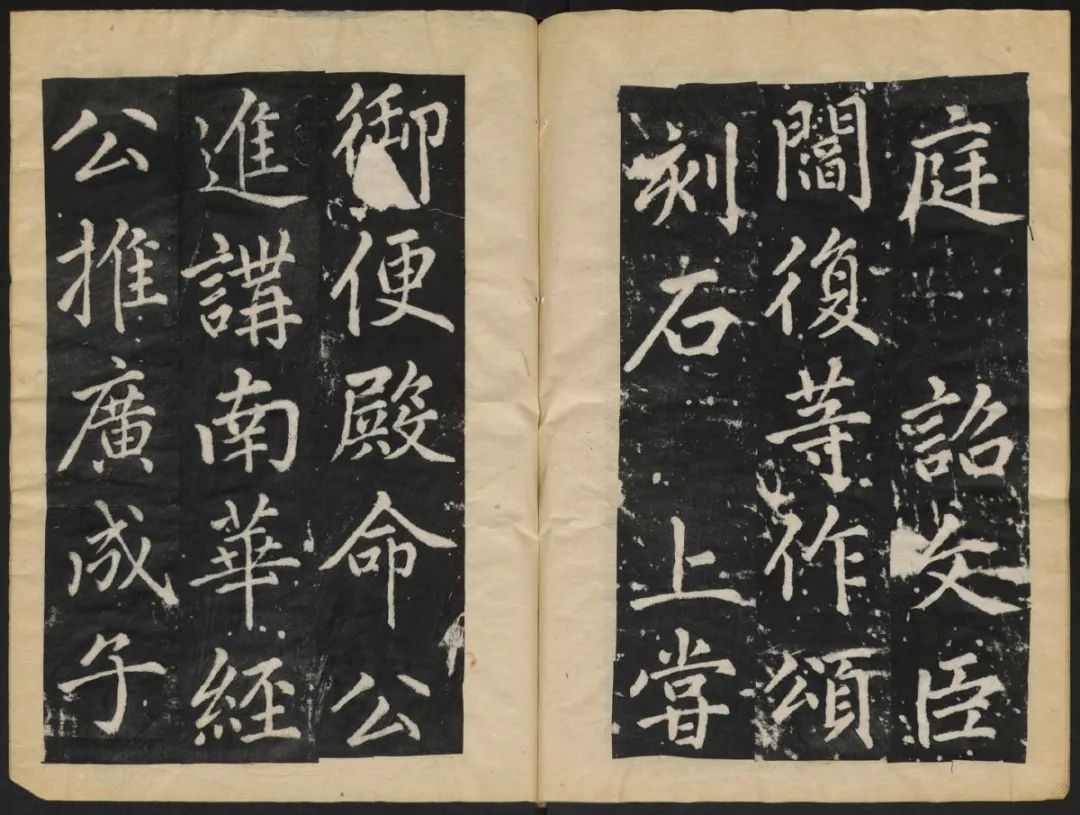 庭 詔文臣
閻復等作頌
刻石 上甞
御便殿命公
進講南華經
公推廣成子